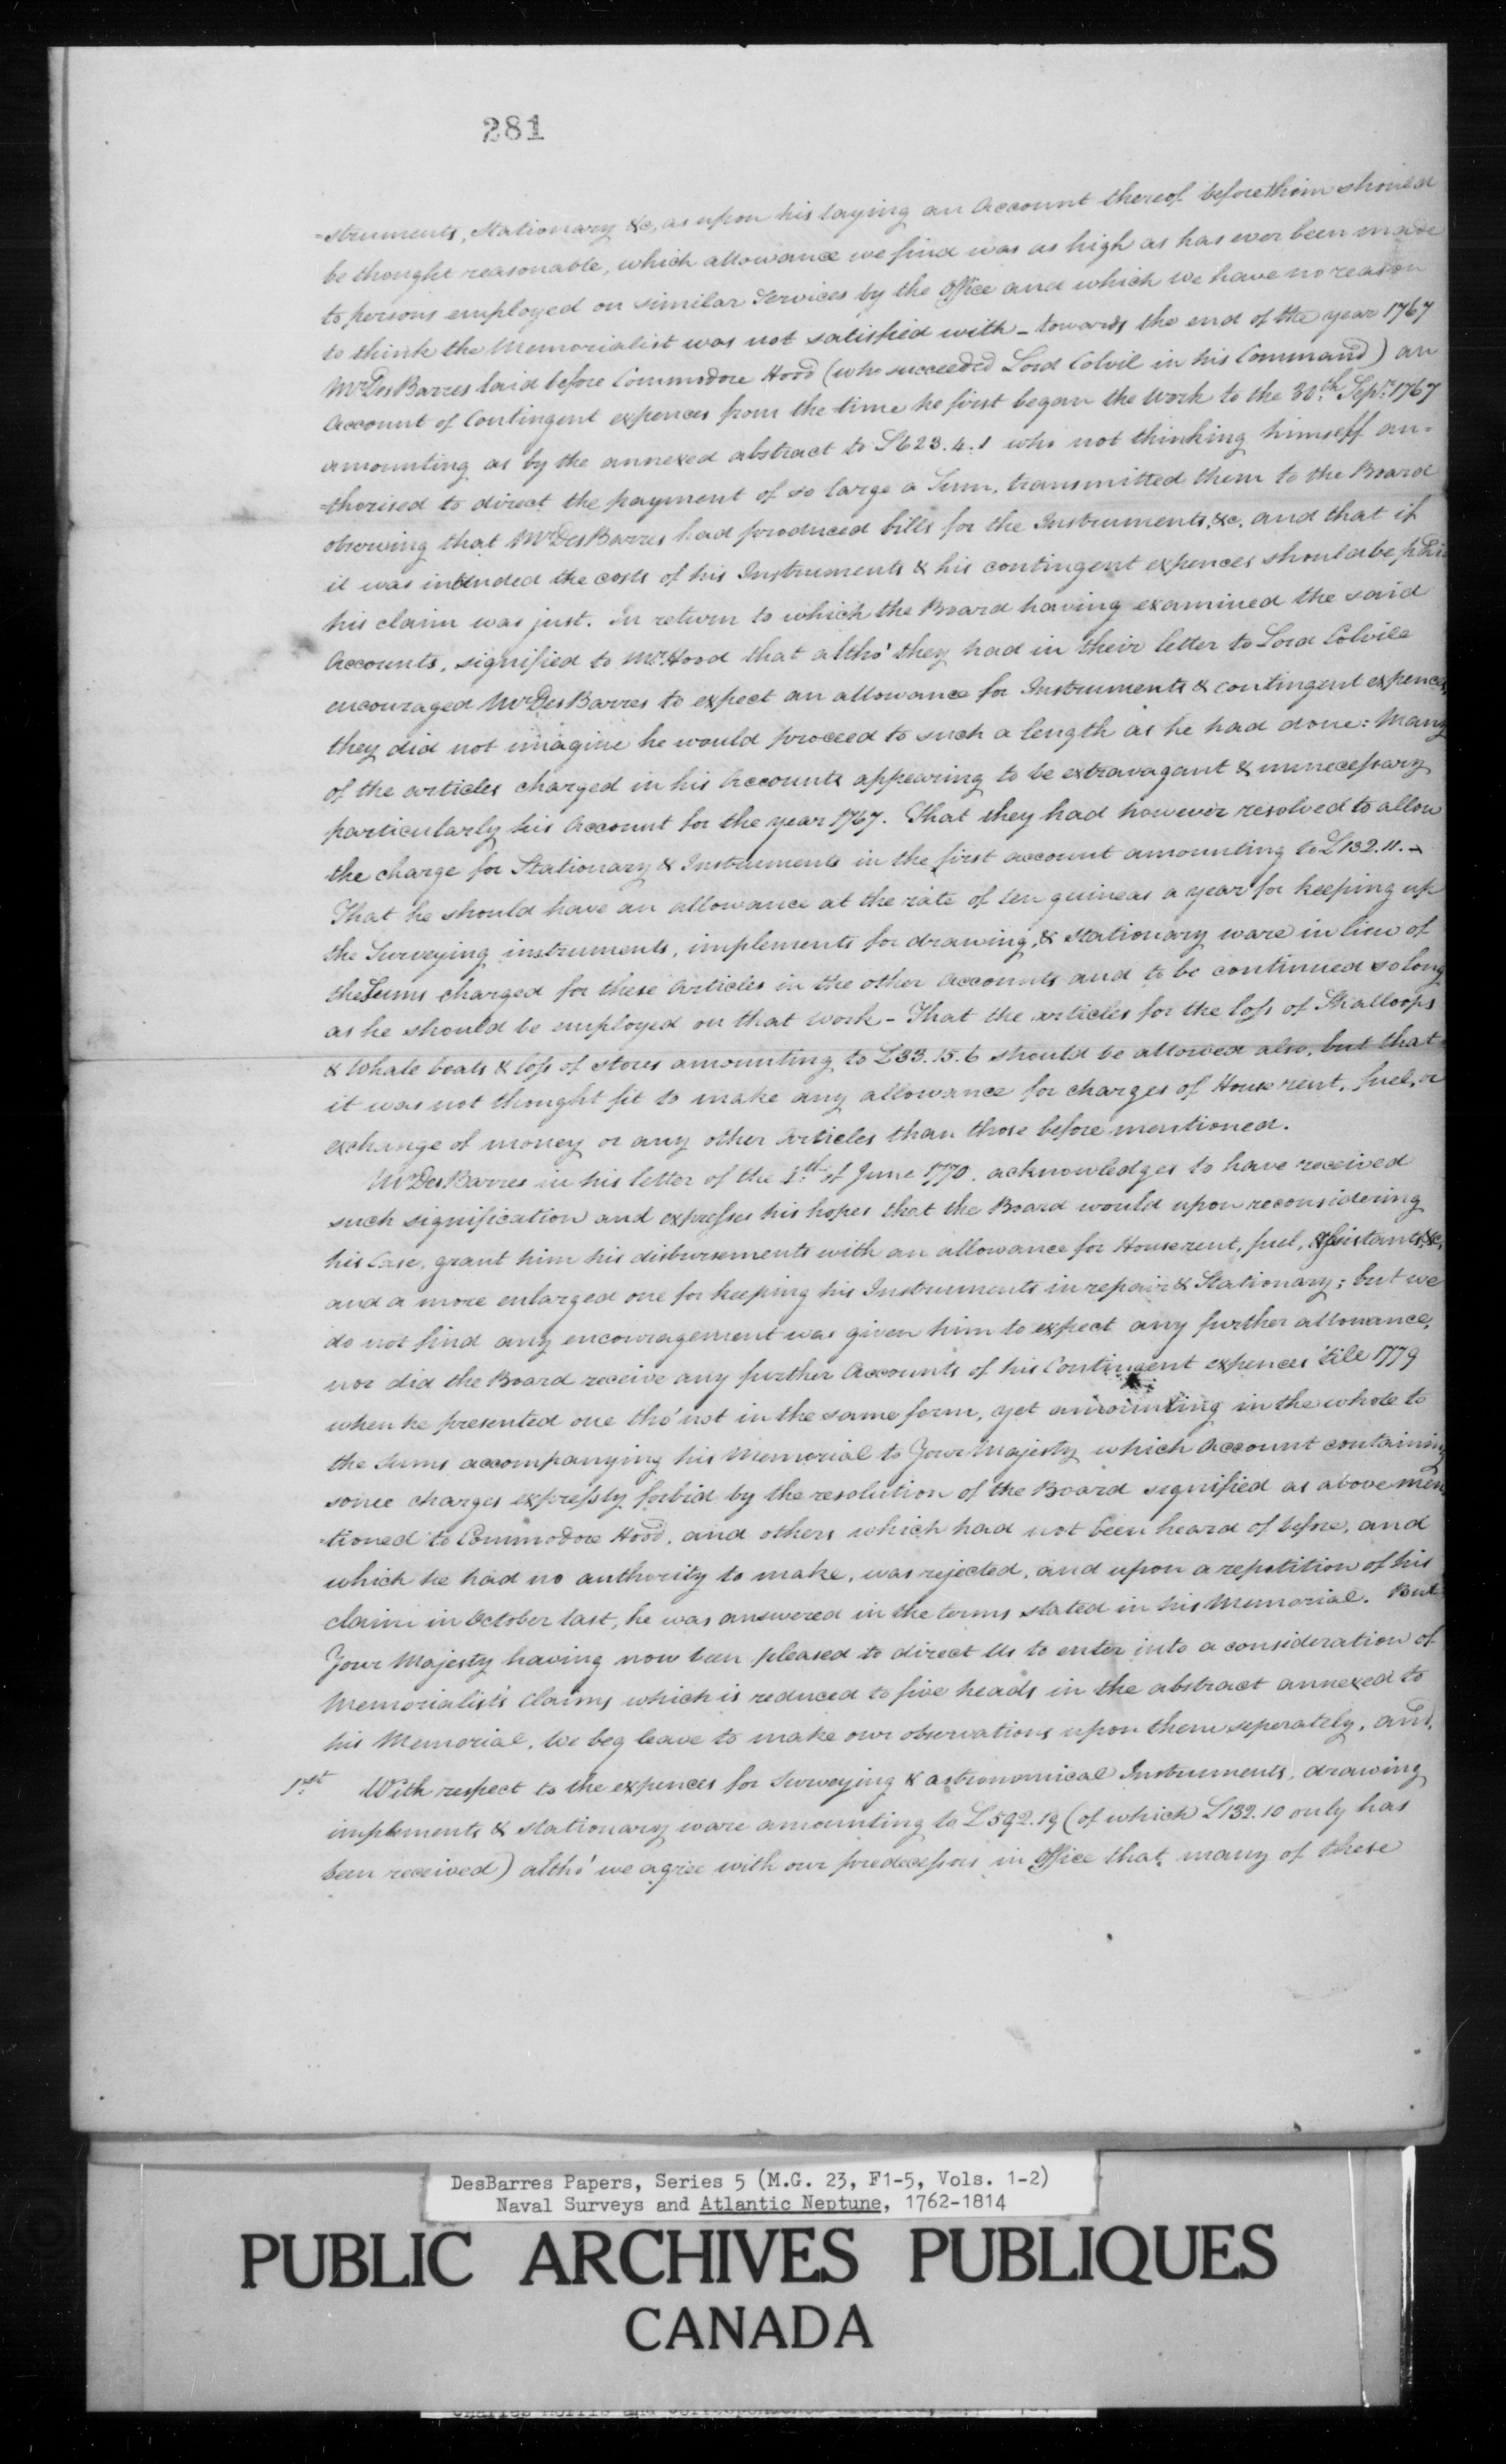 281
=struments, Stationary &c, as upon his laying an Account thereof before them should
be thought reasonable, which allowance we find was as high as has ever been made
to persons employed on similar Services by the Office and which we have no reason
to think the Memorialist was not satisfied with – towards the end of the year 1767
Mr DesBarres laid before Commodore Hood (who succeeded Lord Colvil in his Command) an
Account of Contingent expences from the time he first began the Work to the 30.th Sepr. 1767
amounting as by the annexed abstract to £623.4.1 who not thinking himself au=
=thorised to direct the payment of so large a Sum, transmitted them to the Board
observing that Mr DesBarres had produced bills for the Instruments, &c. and that if
it was intended the costs of his Instruments & his contingent expences should be paid
his claim was just. In return to which the Board having examined the said
Accounts, signified to Mr. Hood that altho' they had in their letter to Lord Colvile
encouraged Mr DesBarres to expect an allowance for Instruments & contingent expences,
they did not imagine he would proceed to such a length as he had done: Many
of the articles charged in his Accounts appearing to be extravagant & unnecessary
particularly his Account for the year 1767. That they had however resolved to allow
the charge for Stationary & Instruments in the first account amounting to £132.11.–
That he should have an allowance at the rate of ten guineas a year for keeping up
the Surveying instruments, implements for drawing, & stationary ware in lieu of
the Sums charged for these Articles in the other Accounts and to be continued so long
as he should be employed on that work – That the articles for the loss of Shalloops
& Whale boats & loss of stores amounting to £33.15.6 should be allowed also, but that
it was not thought fit to make any allowance for charges of House rent, fuel, or
exchange of money or any other Articles than those before mentioned.
Mr DesBarres in his letter of the 1.th of June 1770, acknowledges to have received
such signification and expresses his hopes that the Board would upon reconsidering
his Case, grant him his disbursements with an allowance for House rent, fuel, Assistants &c,
and a more enlarged one for keeping his Instruments in repair & Stationary; but we
do not find any encouragement was given him to expect any further allowance,
nor did the Board receive any further Accounts of his Contingent expences 'till 1779
when he presented one tho' not in the same form, yet amounting in the whole to
the Sums accompanying his Memorial to Your Majesty which Account containing
some charges expressly forbid by the resolution of the Board signified as above men
=tioned to Commodore Hood, and others which had not been heard of before, and
which he had no authority to make, was rejected, and upon a repetition of his
claim in October last, he was answered in the terms stated in his Memorial. But
Your Majesty having now been pleased to direct Us to enter into a consideration of
Memorialist's Claims which is reduced to five heads in the abstract annexed to
his Memorial, We beg leave to make our observations upon them seperately, and,
1.st With respect to the expences for Surveying & astronomical Instruments, drawing
implements & stationary ware amounting to £592.19 (of which £132.10 only has
been received) altho' we agree with our predecessors in Office that many of these
DesBarres Papers, Series 5 (M.G. 23, F1-5, Vols. 1-2)
Naval Surveys and Atlantic Neptune, 1762-1814
PUBLIC ARCHIVES PUBLIQUES
CANADA